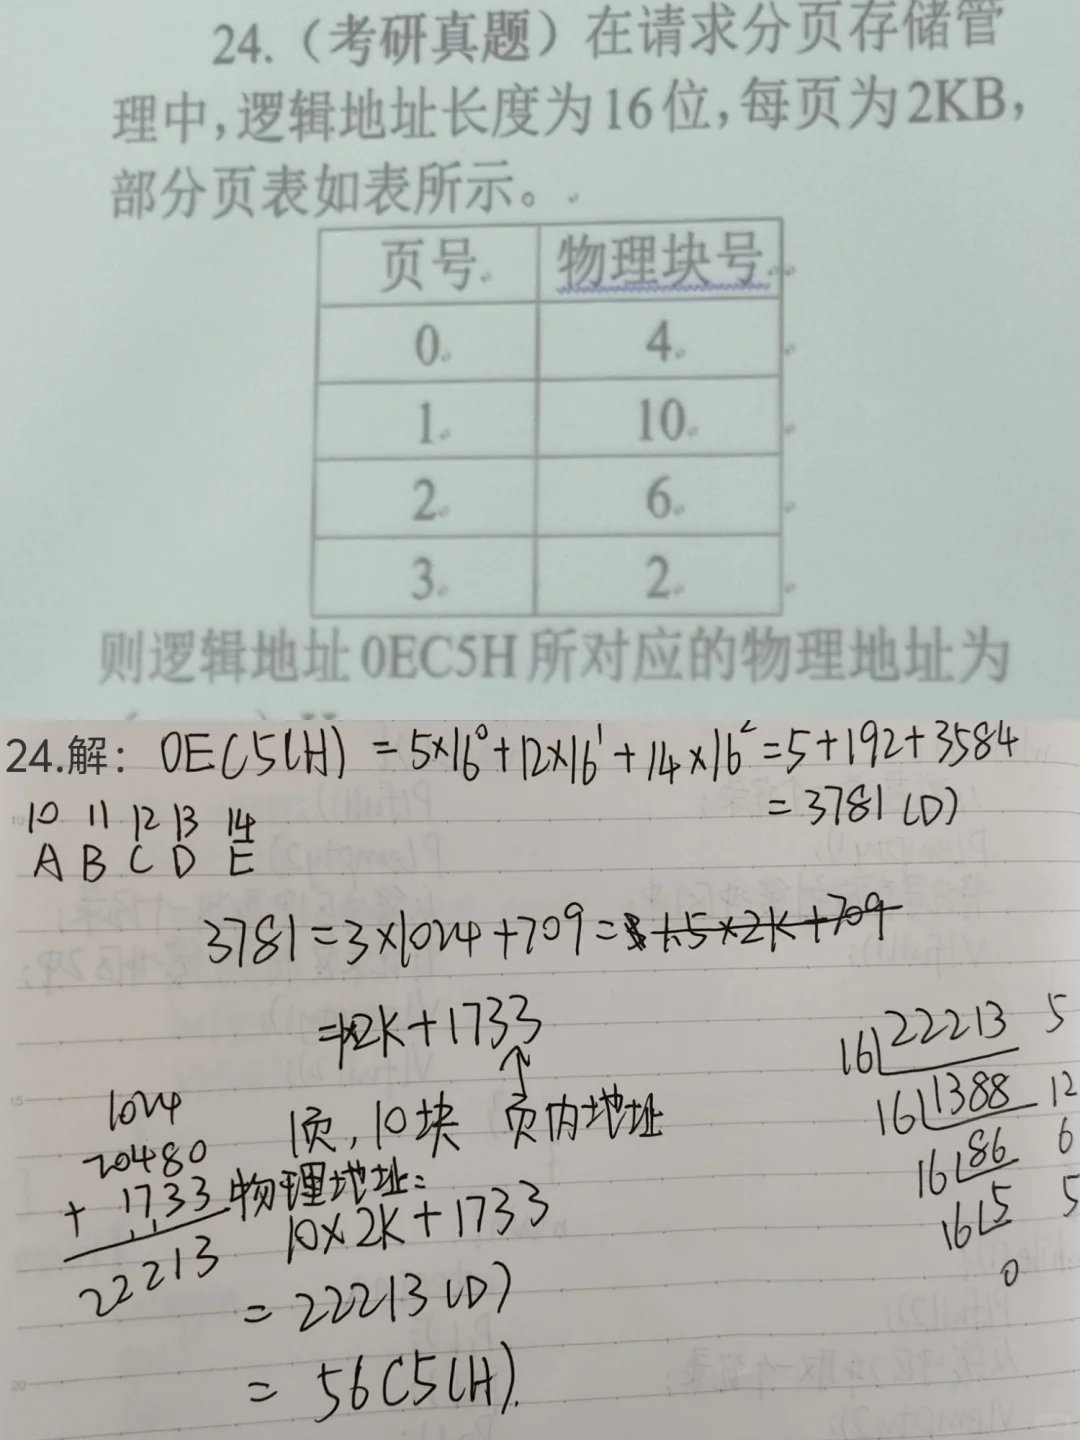 24.（考研真题）在请求分页存储管
理中,逻辑地址长度为16位,每页为2KB,
部分页表如表所示。
页号 物理块号
0 4
1 10
2 6
3 2
则逻辑地址0EC5H所对应的物理地址为
24.解: 0EC5(H) = 5×16⁰+12×16¹+14×16²=5+192+3584
=3781(D)
10 11 12 13 14
A B C D E
3781=3×1024+709=1.5×2K+709
=1×2K+1733
1页,10块 页内地址
物理地址:
10×2K+1733
=22213(D)
=56C5(H).
1024
20480
+ 1733
22213
16 22213 5
16 1388 12
16 86 6
16 5 5
0